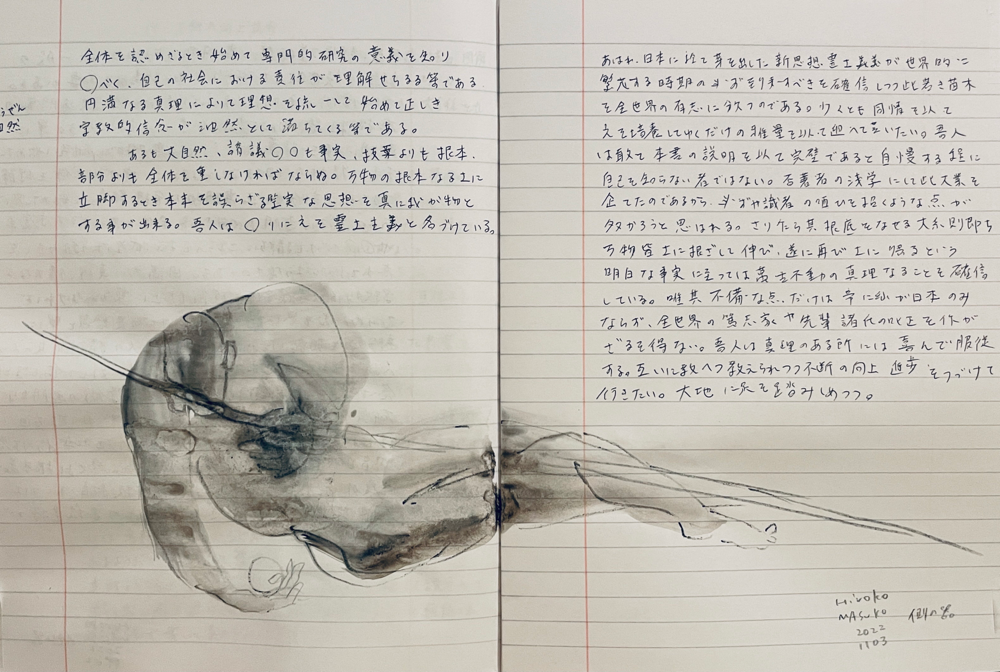 全体を認めざるとき始めて専門的研究の意義を知り
〇べく、自己の社会における責任が理解せらるる筈である
円満なる真理によりて理想を統一して始めて正しき
宗教的信念が油然として満ちてくる筈である。
あるも大自然、諸議〇〇も事実、枝葉よりも根本、
部分よりも全体を重しなければならぬ。万物の根本なる土に
立脚するとき本末を誤らざる堅実な思想を真に我が物と
する事が出来る。吾人は〇りに之を霊土主義と名づけている。
あはれ、日本に於て芽を出した新思想霊土主義が世界的に
繁茂する時期の必ず到来すべきを確信しつつ此若き苗木
を全世界の有志に分つのである。少くとも同情を以て
之を培養してゆくだけの雅量を以て迎へて貰いたい。吾人
は敢て本書の説明を以て完璧であると自慢する程に
自己を知らない者ではない。否著者の浅学にして此大業を
企てたのであるから、必ずや識者の哂ひを招くような点が
多かろうと思はれる。さりたら其根底をなせる大系則即ち
万物皆土に根ざして伸び、遂に再び土に帰るという
明白な事実に至っては萬古不動の真理なることを確信
している。唯其不備な点だけは幸に我が日本のみ
ならず、全世界の篤志家や先輩諸氏の叱正を仰が
ざるを得ない。吾人は真理のある所には喜んで服従
する。互いに教へつ教えられつつ不断の向上進歩をつづけて
行きたい。大地に足を踏みしめつつ。
Hiroko
MASUKO
2022
1103